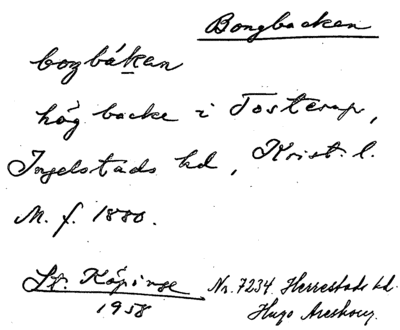 Bongbacken
boŋbákan
hög backe i Tosterup,
Ingelstads hd, Krist. l.
M. f. 1880.
St. Köpinge Nr. 7234. Herrestads hd.
1958 Hugo Areskoug.